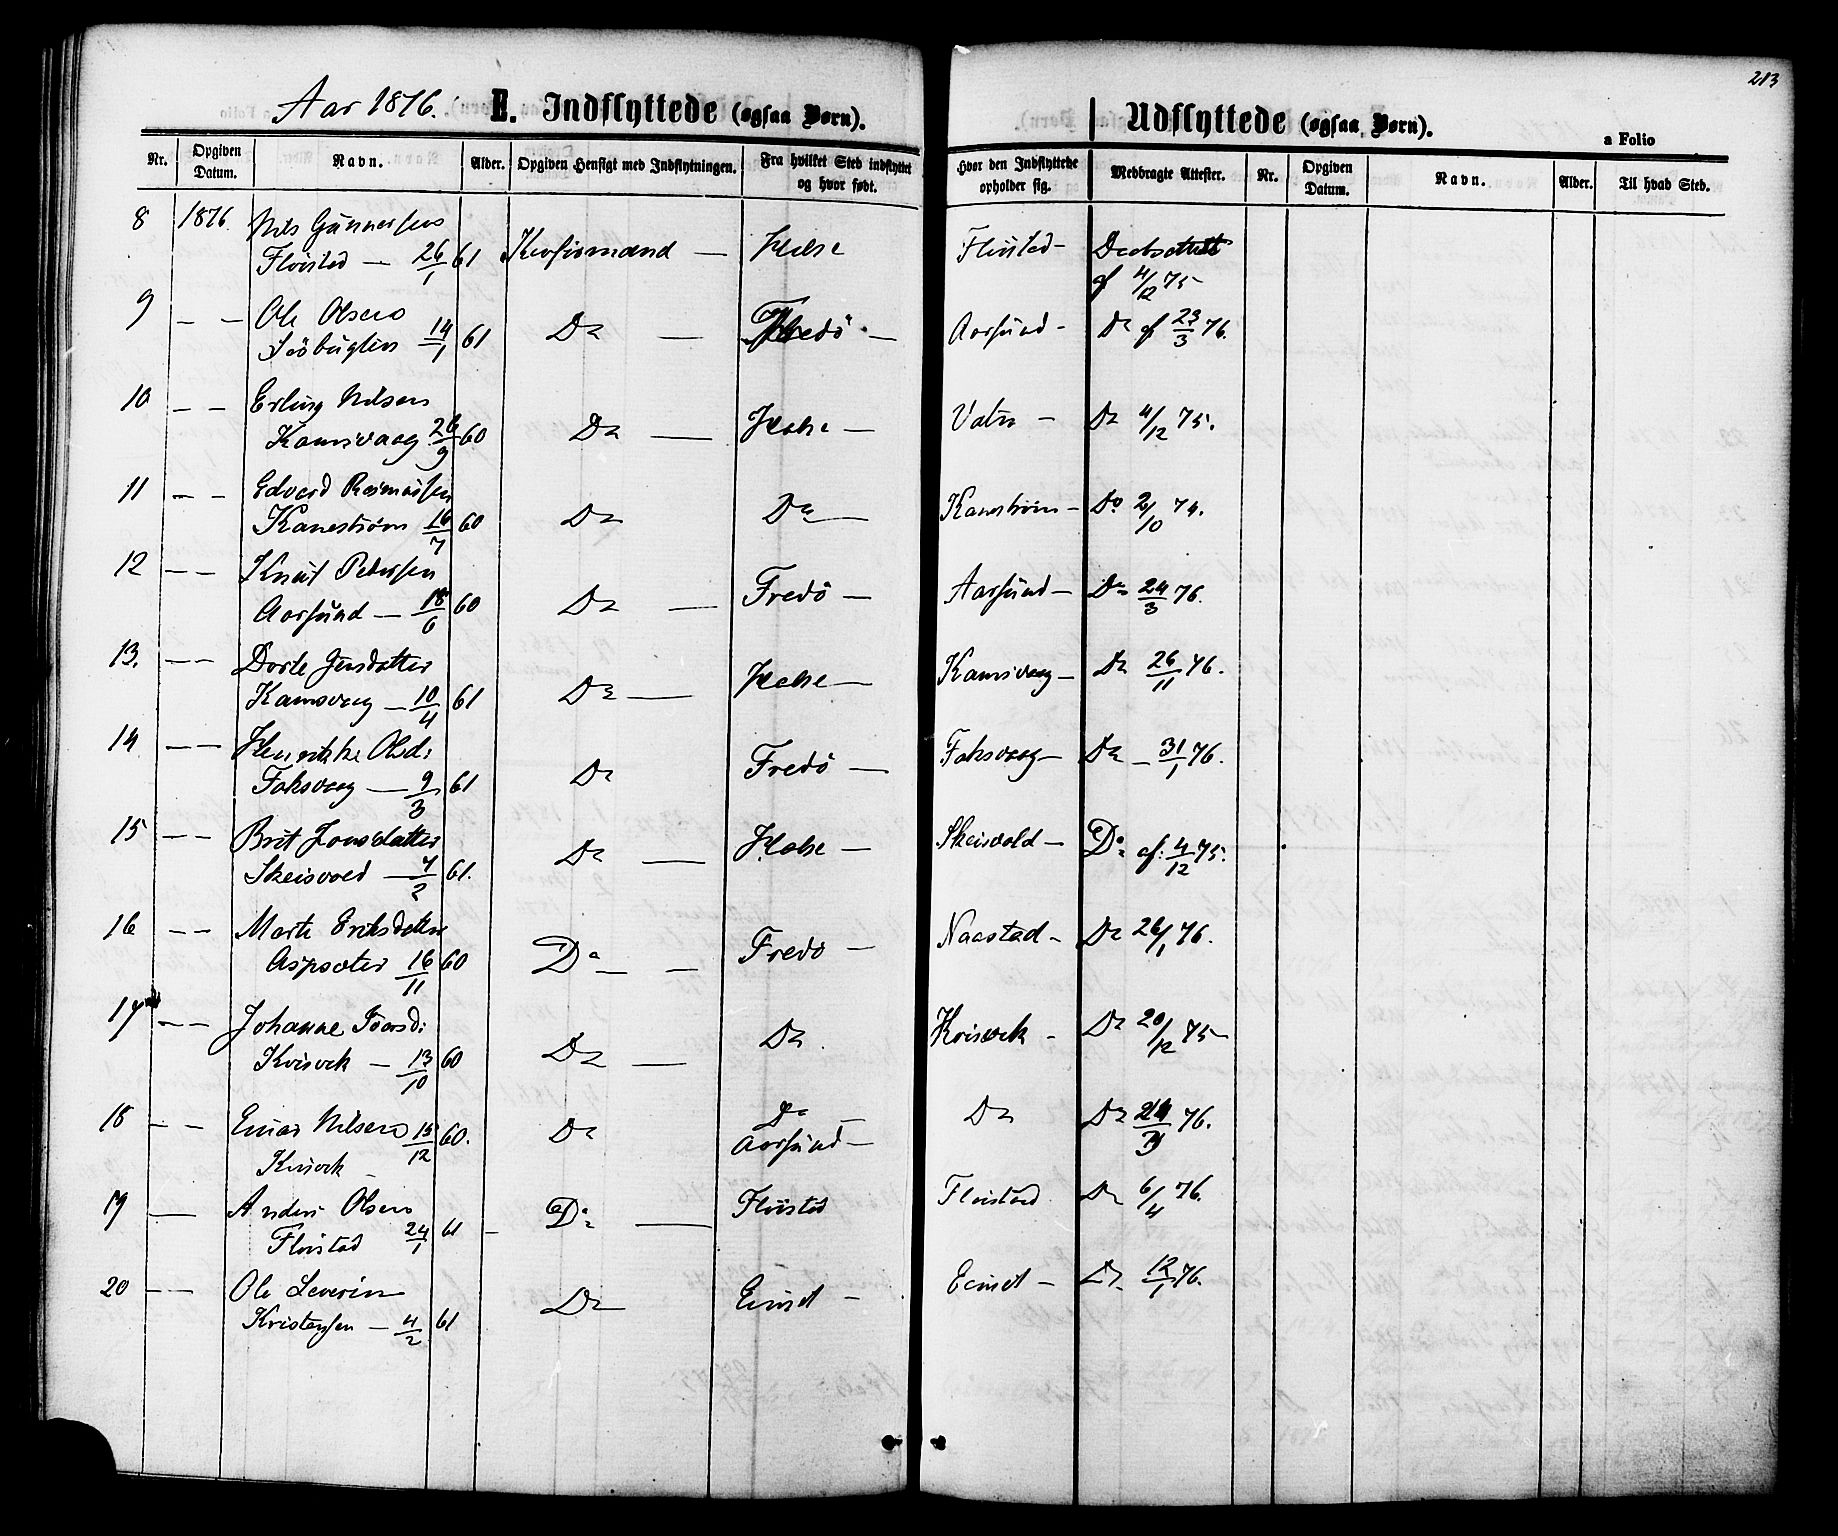 213
Aar 1876. E. Indflyttede (ogsaa Børn).
Udflyttede (ogsaa Børn).
a Folio
Nr. Opgiven Datum. Navn. Alder. Opgiven Hensigt med Indflytningen. Fra hvilket Sted indflyttet og hvor født. Hvor den Indflyttede opholder sig. Medbragte Attester. Nr. Opgiven Datum. Navn. Alder. Til hvad Sted.
8 1876. Nils Gunnersen
Fløistad — 26/1 61 — Halse Fløistad — Daabsattest
af 4/12 75
9 — — Ole Olsen
14/1 61 Do — Fredö — Aarsund — Do af 23/3 76.
10 — — Erling Nilsen
Kamsvaag 26/9 60 Do — Halse — Vatn — Do 4/12 75.
11 — — Edvard Rasmussen
Kanestrøm 16/7 60 Do Do — Kanestrøm — Do 2/10 74.
12 — — Knut Petersen
Aarsund — 18/6 60 Do — Fredö — Aarsund — Do 24/3 76.
13. — — Dorte Jensdatter
Kamsvaag — 10/4 61 Do — Halse — Kamsvaag — Do 26/11 76.
14 — — Henrikke Olsd:
Foksvaag — 9/3 61 Do Fredö — Foksvaag — Do — 31/1 76.
15 — — Brit Jonsdatter
Skeisvold — 7/2 61. Do — Halse — Skeisvold — Do af: 4/12 75.
16 — — Marte Eriksdatter
Aspsæter 16/11 60 Do — — Fredö — Naastad — Do 26/1 76.
17 — — Johanne
Kvisvik — 13/10 60 Do — Do. Kvisvik — Do 20/12 75
18 — — Einar Nilsen 15/12 60. Do Do — Do Do 76.
Kvisvik Aarsund —
19 — Anders Olsen
Fløistad 24/1 61 — Do — Fløistad Fløistad Do 6/4 76.
20 — — Ole Severin
Kristensen — 4/2 61 Do Einset — Einset — Do 12/1 76.